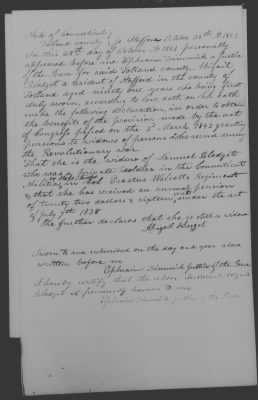 State of Connecticut
Tolland County ss Stafford October 28th AD 1843
On this 28th day of October AD 1843 personally
appeared before me Ephraim Dimmick a Justice
of the Peace for said Tolland County. Abigail
Blodget a resident of Stafford in the County of
Tolland aged ninety one years who being first
duly sworn, according to law doth on her oath
make the following declaration, in order to obtain
the benefits of the provision made by the act
of Congress passed on the 3d March 1843 granting
pensions to widows of persons who served during
the Revolutionary war.
That she is the widow of Samuel Blodget
who was a private Soldier in the Connecticut
Militia in Col Erastus Wolcott's Regiment
& that she has received an annual pension
of twenty two dollars & sixteen under the act
of July 7th 1838
She further declares that she is still a widow
Abigail Blodget
Sworn to and subscribed on the day and year above
written before me
Ephraim Dimmick Justice of the Peace
I hereby certify that the above
Blodget is personally known to me
Ephraim Dimmick Justice of the Peace